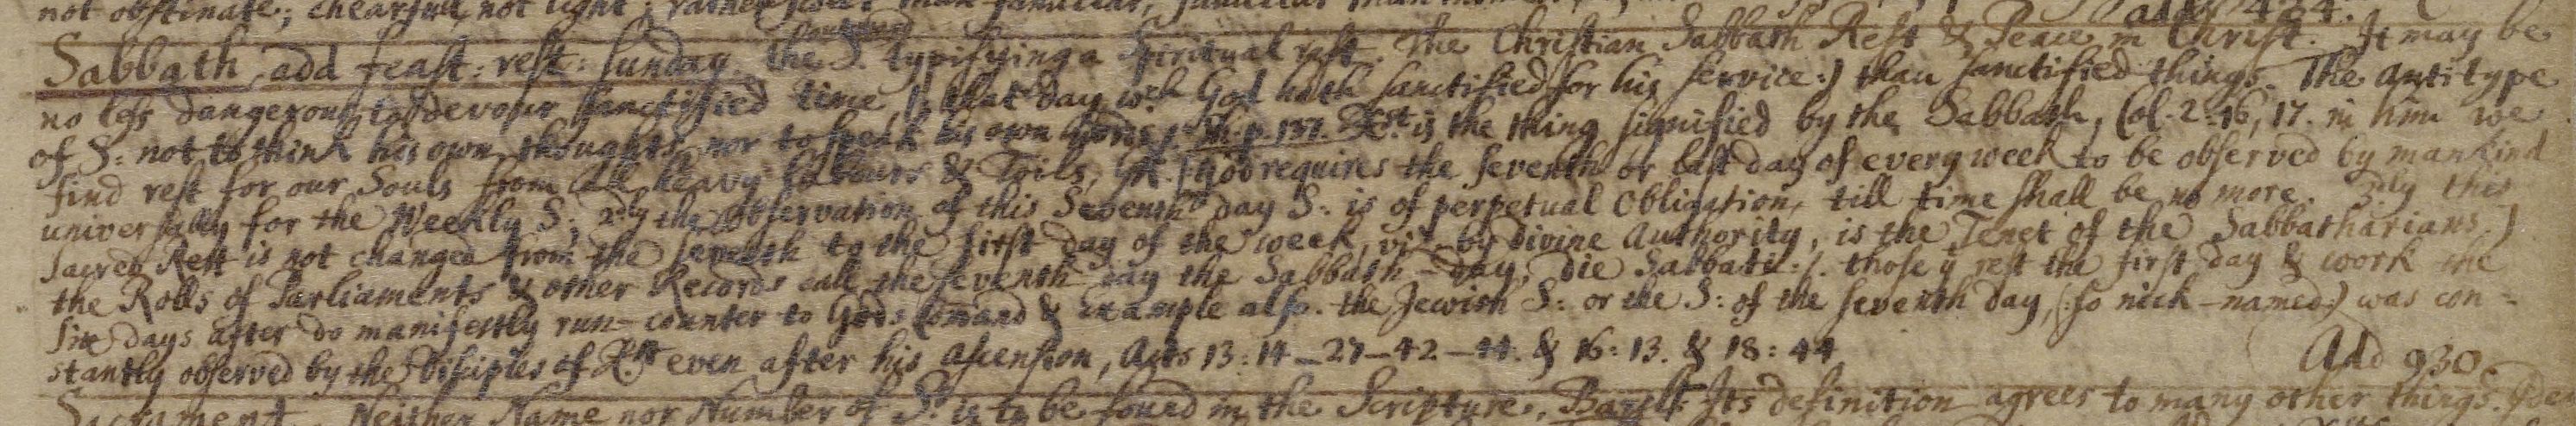 not obstinate; chearfull, not light; rather
add 424.
Sabbath, add feast: rest: Sunday. the outward S. typifying a Spiritual rest. The Christian Sabbath Rest & Peace in Christ. It may be
no less dangerous to devour sanctified time, (: that day wch God hath sanctified for his service:) than sanctified things. The Antitype
of S: not to think his own thoughts, nor to speak his own words. Sh. p. 137. Xst. is the thing signified by the Sabbath, Col. 2. 16, 17. in him we
find rest for our Souls from all heavy Labours & Toils, God requires the seventh or last day of every week to be observed by mankind
universally for the Weekly S; 2dly the Observation of this Seventh day S: is of perpetual Obligation, till time shall be no more. 3dly this
Sacred Rest is not changed from the seventh to the first day of the week, viz. by divine Authority, is the Tenet of the Sabbatharians.)
the Rolls of Parliaments & other Records call the seventh day the Sabbath-day, Die Sabbati:/. those yt rest the first day & work the
six days after do manifestly run-counter to Gods Comand & Example also. the Jewish S: or the S: of the seventh day, (: so nick-named:) was con-
stantly observed by the Disciples of Xst. even after his Ascension, Acts 13: 14-27-42-44. & 16: 13. & 18: 44
Add 930.
Sacrament. Neither Name nor Number of S. is to be found in the Scripture, Its definition agrees to many other things.